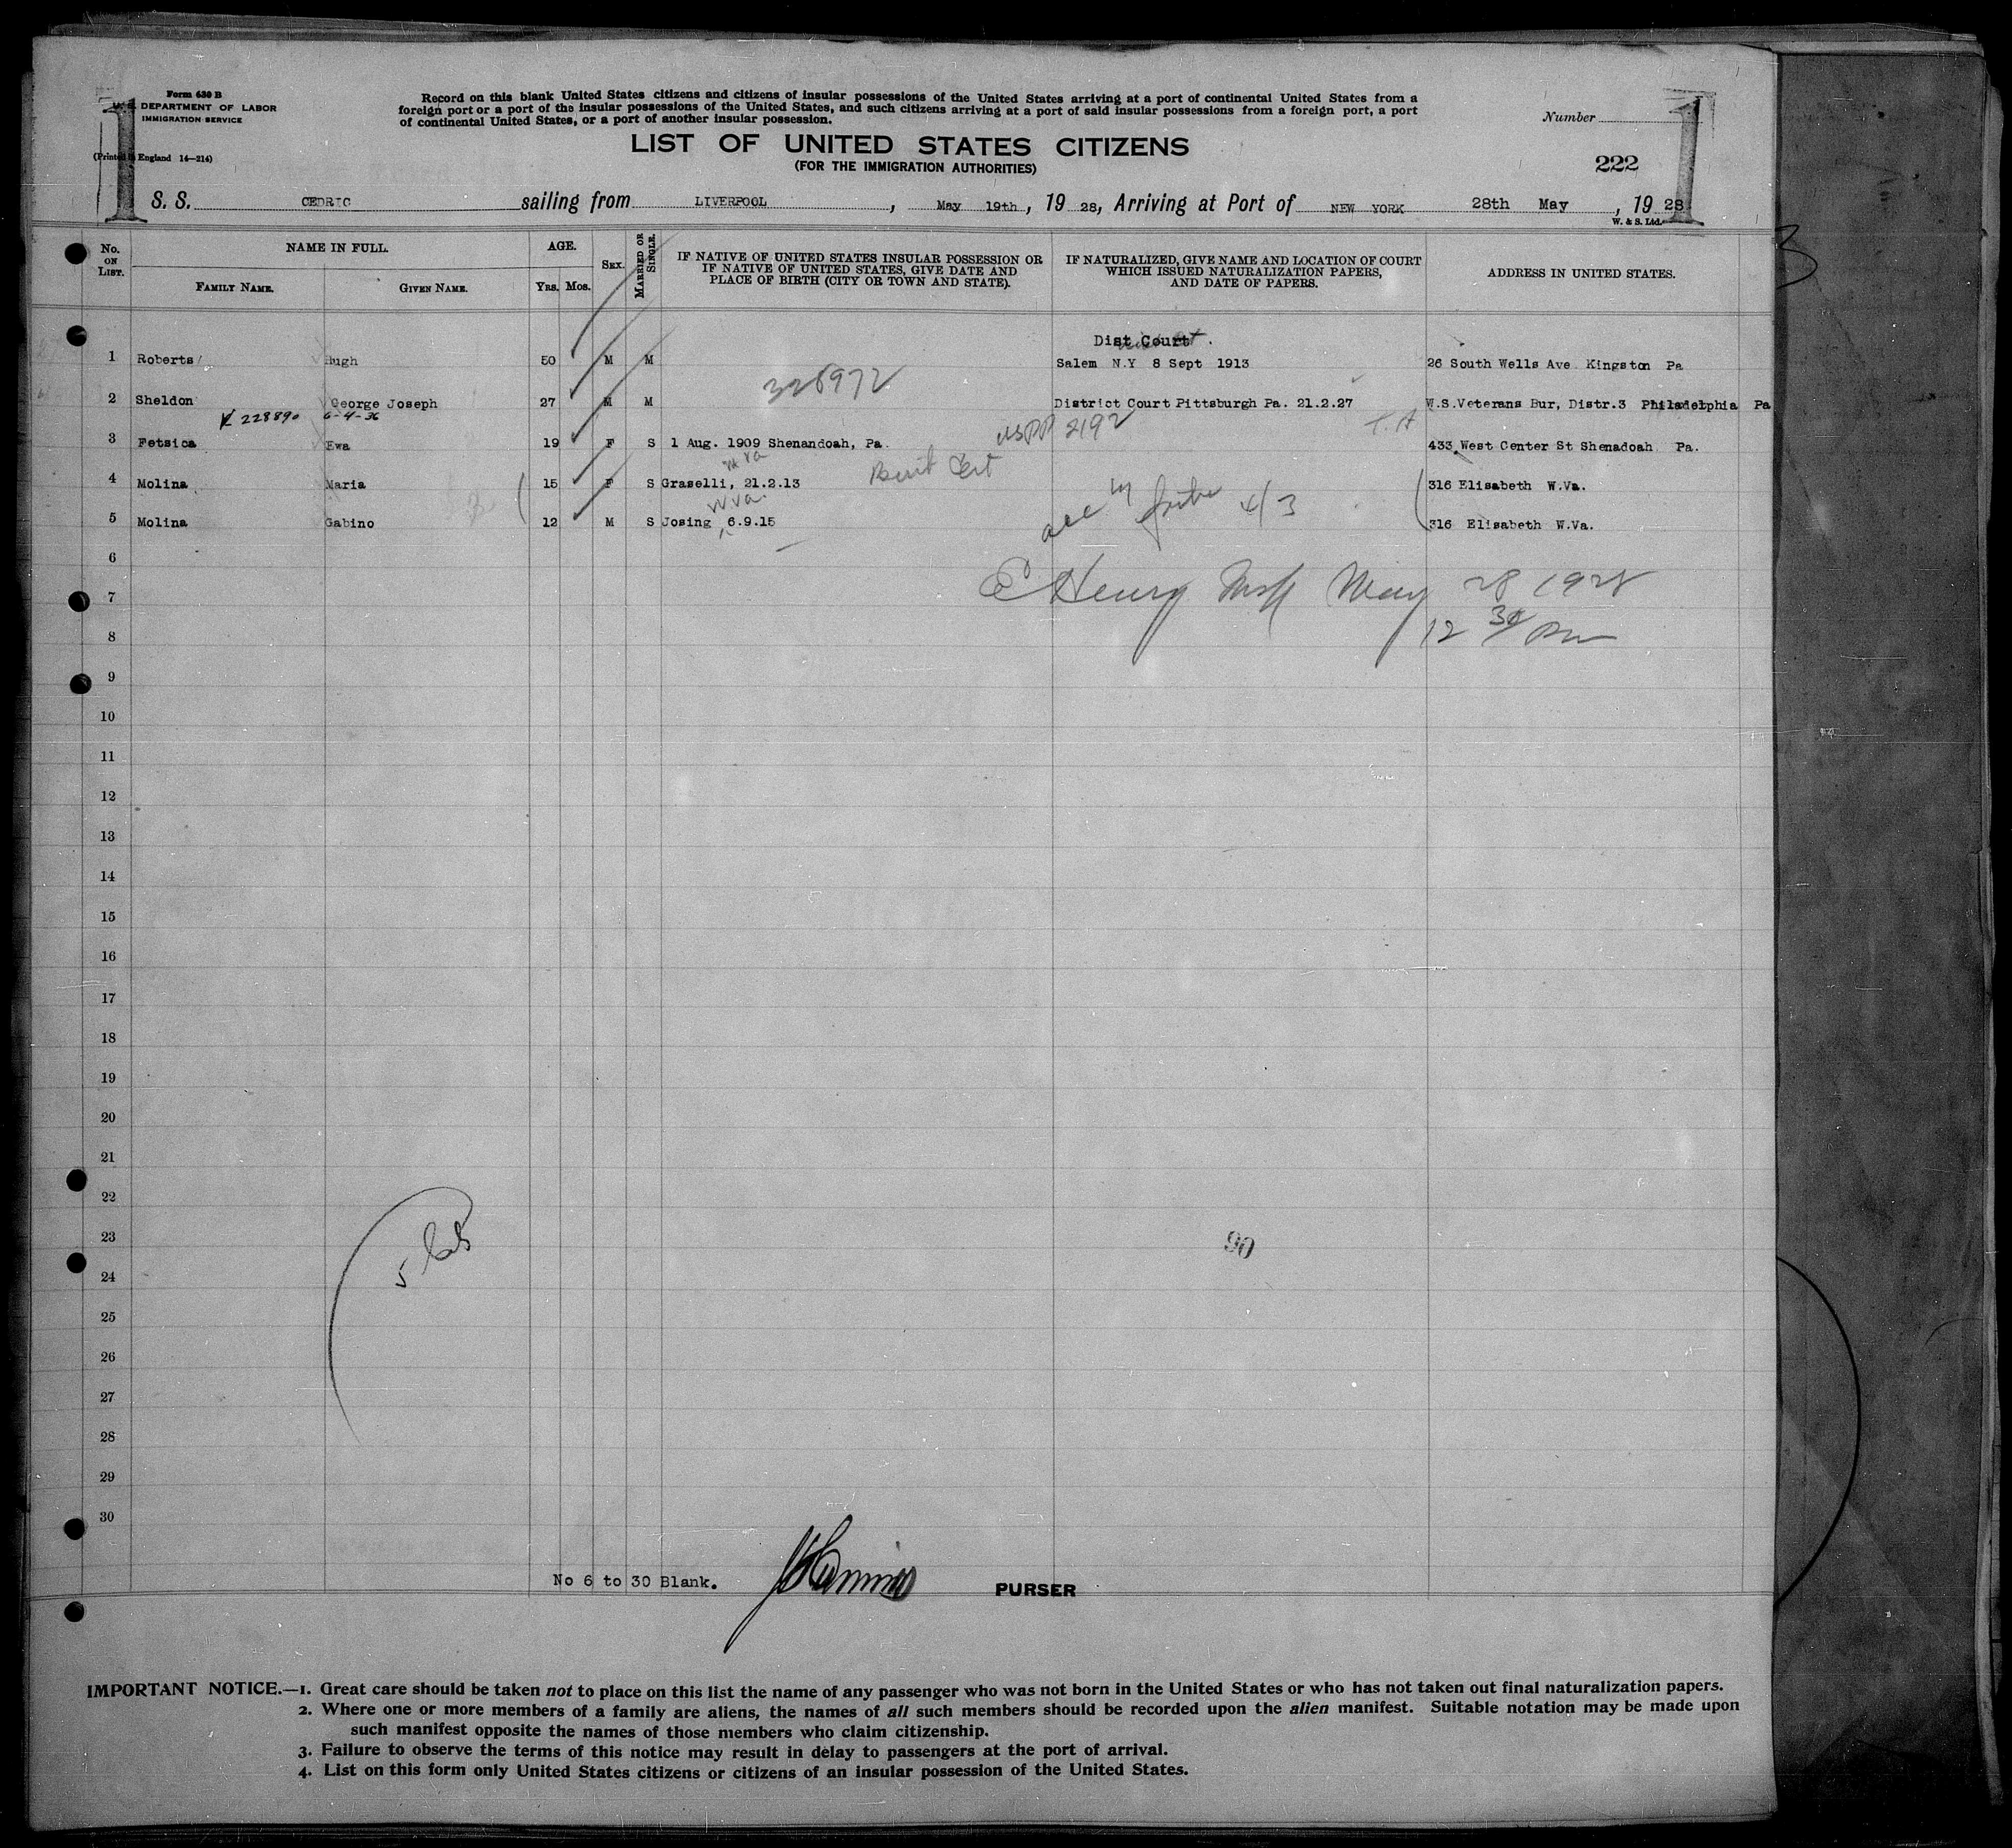 Form 630 B
U. S. DEPARTMENT OF LABOR
IMMIGRATION SERVICE
(Printed in England 14—214)
1
Record on this blank United States citizens and citizens of insular possessions of the United States arriving at a port of continental United States from a
foreign port or a port of the insular possessions of the United States, and such citizens arriving at a port of said insular possessions from a foreign port, a port
of continental United States, or a port of another insular possession.
Number
1
LIST OF UNITED STATES CITIZENS
(FOR THE IMMIGRATION AUTHORITIES)
222
S. S. CEDRIC sailing from LIVERPOOL, May 19th, 19 28, Arriving at Port of NEW YORK 28th May, 19 28
W. & S. Ltd.
No. ON LIST. NAME IN FULL. AGE. SEX. MARRIED OR SINGLE. IF NATIVE OF UNITED STATES INSULAR POSSESSION OR IF NATIVE OF UNITED STATES, GIVE DATE AND PLACE OF BIRTH (CITY OR TOWN AND STATE). IF NATURALIZED, GIVE NAME AND LOCATION OF COURT WHICH ISSUED NATURALIZATION PAPERS, AND DATE OF PAPERS. ADDRESS IN UNITED STATES.
FAMILY NAME. GIVEN NAME. YRS. MOS.
Dist Court.
1 Roberts Hugh 50 M M Salem N.Y 8 Sept 1913 26 South Wells Ave Kingston Pa
328972
2 Sheldon George Joseph 27 M M District Court Pittsburgh Pa. 21.2.27 W.S.Veterans Bur, Distr.3 Philadelphia Pa
228890 6-4-36
USPP 2192 T.A
3 Fetsica Ewa 19 F S 1 Aug. 1909 Shenandoah, Pa. 433 West Center St Shenadoah Pa.
W Va
Birt Cert
4 Molina Maria 15 F S Graselli, 21.2.13 316 Elisabeth W.Va.
W Va.
5 Molina Gabino 12 M S Josing 6.9.15 316 Elisabeth W.Va.
4/3
6
E Henry Insp May 28 1928
7
12 30 Pm
8
9
10
11
12
13
14
15
16
17
18
19
20
21
22
23
90
5
24
25
26
27
28
29
30
No 6 to 30 Blank.
PURSER
IMPORTANT NOTICE.—1. Great care should be taken not to place on this list the name of any passenger who was not born in the United States or who has not taken out final naturalization papers.
2. Where one or more members of a family are aliens, the names of all such members should be recorded upon the alien manifest. Suitable notation may be made upon
such manifest opposite the names of those members who claim citizenship.
3. Failure to observe the terms of this notice may result in delay to passengers at the port of arrival.
4. List on this form only United States citizens or citizens of an insular possession of the United States.